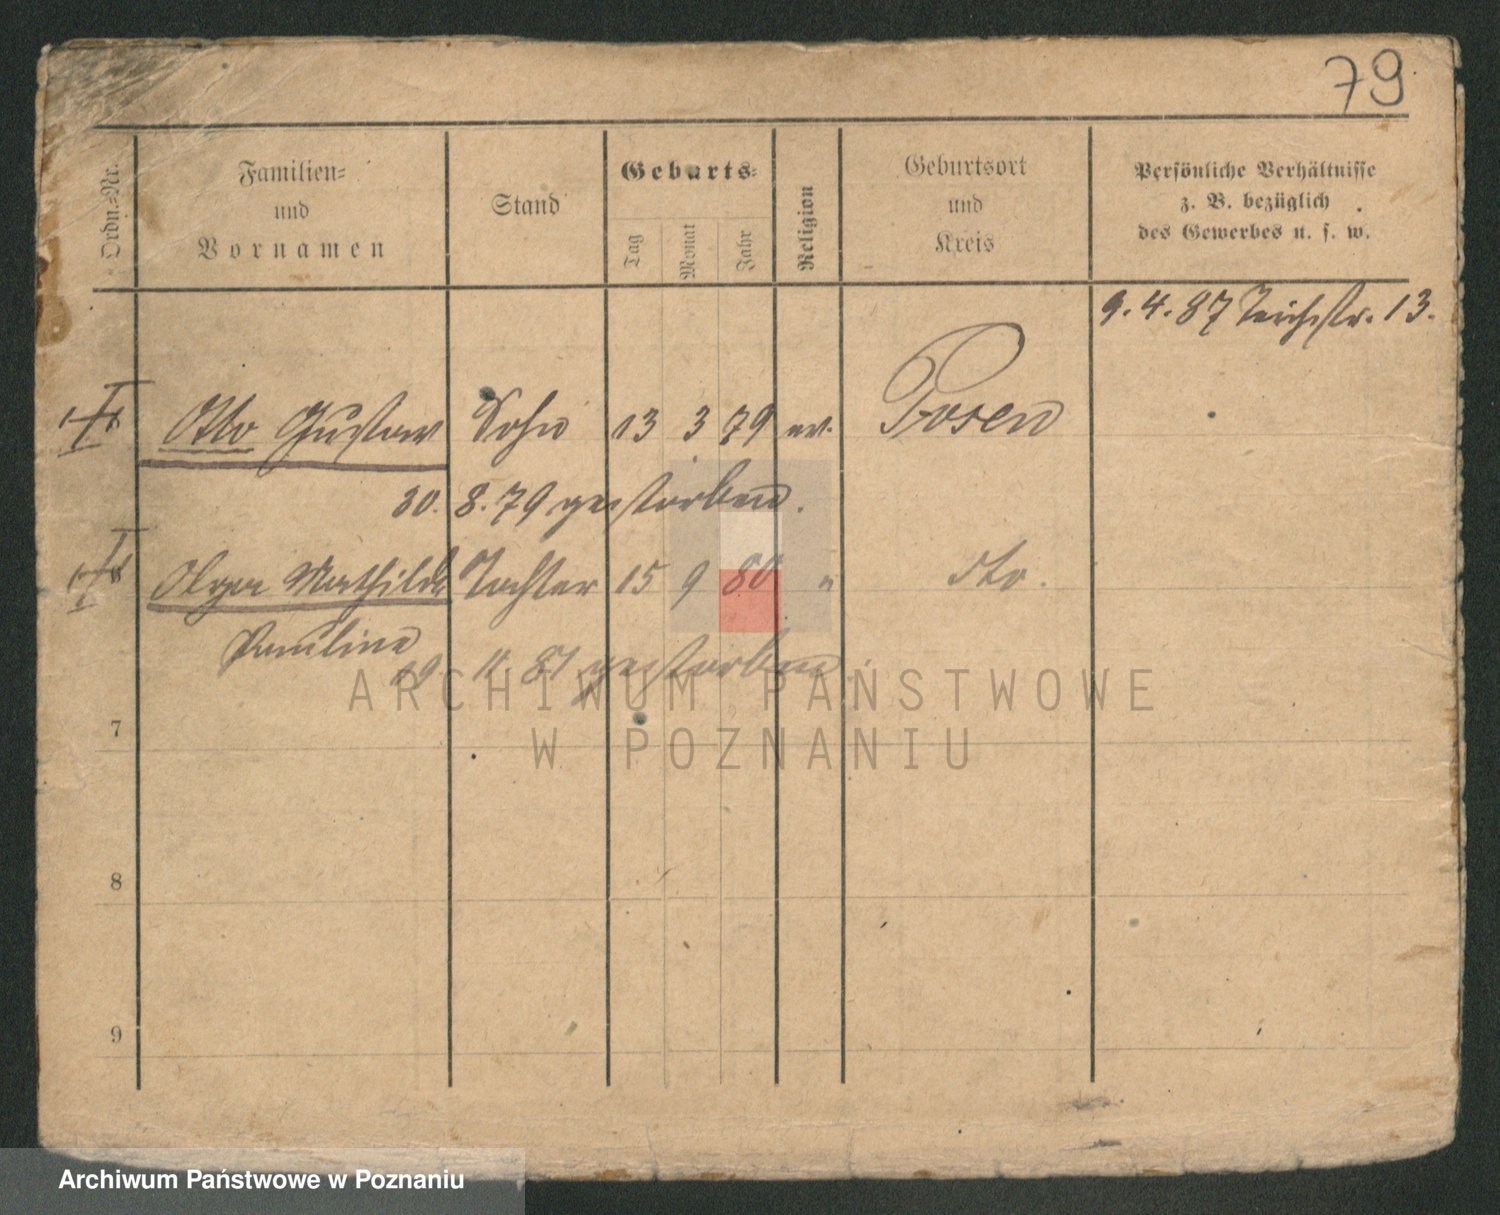 79
Ordn.-Nr.
Familien-
und
Vornamen
Stand
Geburts-
Tag
Monat
Jahr
Religion
Geburtsort
und
Kreis
Persönliche Verhältnisse
z. B. bezüglich
des Gewerbes u. s. w.
9.4.87 Teichstr. 13.
Otto Gustav Sohn 13 3 79 ev. Posen
30. 8. 79 gestorben.
Olga Mathilde Tochter 15 9 80 " dto.
Pauline
29 11 81 gestorben
ARCHIWUM PAŃSTWOWE
W POZNANIU
7
8
9
Archiwum Państwowe w Poznaniu